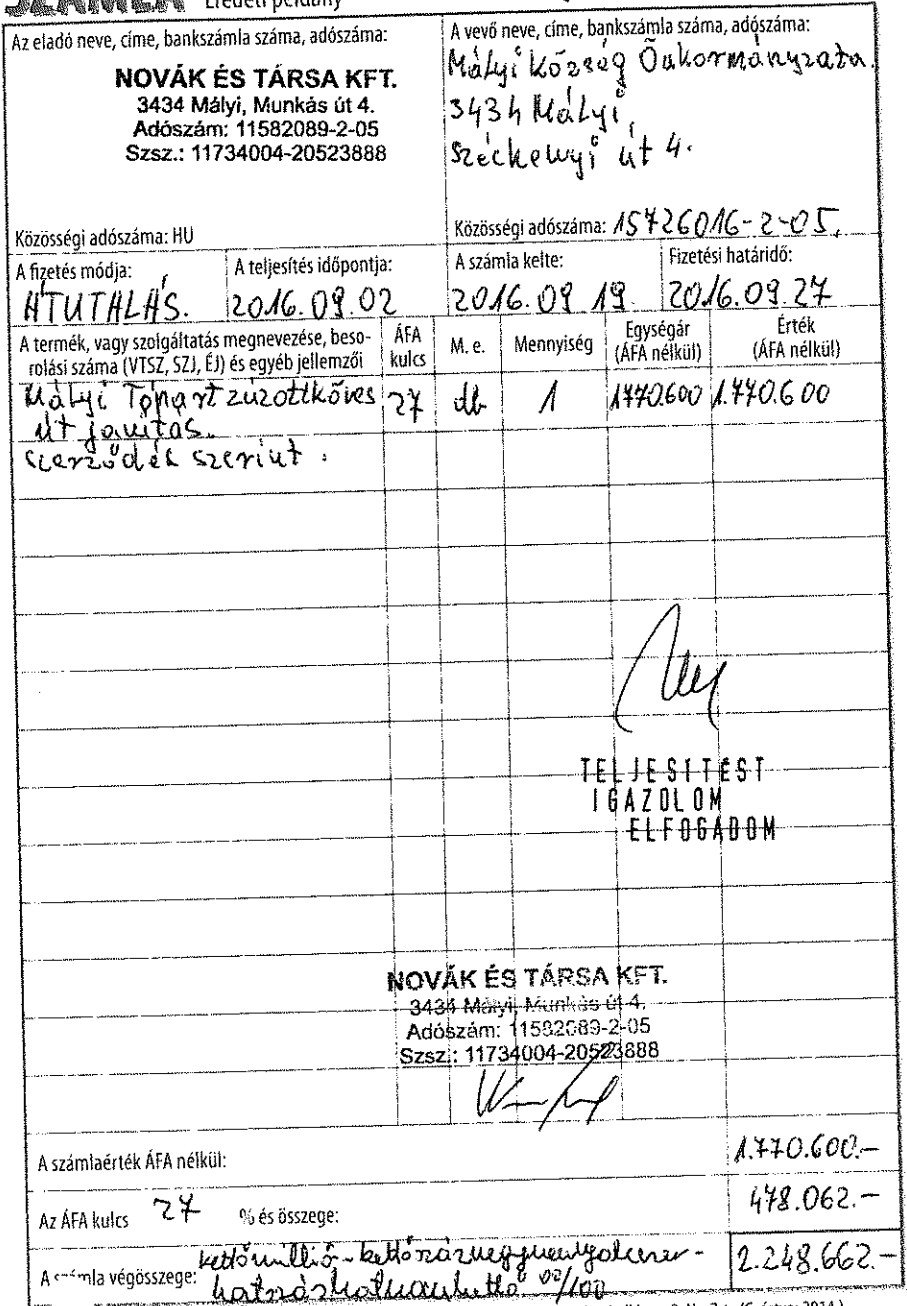 SZÁMLA Eredeti példány
Az eladó neve, címe, bankszámla száma, adószáma:
NOVÁK ÉS TÁRSA KFT.
3434 Mályi, Munkás út 4.
Adószám: 11582089-2-05
Szsz.: 11734004-20523888
Közösségi adószáma: HU
A vevő neve, címe, bankszámla száma, adószáma:
Mályi Község Önkormányzata.
3434 Mályi,
Széchenyi út 4.
Közösségi adószáma: 15726016-2-05.
A fizetés módja:
ÁTUTALÁS.
A teljesítés időpontja:
2016.09.02
A számla kelte:
2016.09.19.
Fizetési határidő:
2016.09.27
A termék, vagy szolgáltatás megnevezése, beso-
rolási száma (VTSZ, SZJ, ÉJ) és egyéb jellemzői
ÁFA
kulcs
M. e.
Mennyiség
Egységár
(ÁFA nélkül)
Érték
(ÁFA nélkül)
Mályi Tópart zúzottköves 27 db 1 1770.600 1.770.600
út javítás.
szerződés szerint.
TELJESITÉST
IGAZOLOM
ELFOGADOM
NOVÁK ÉS TÁRSA KFT.
3434 Mályi, Munkás út 4.
Adószám: 11582089-2-05
Szsz.: 11734004-20523888
A számlaérték ÁFA nélkül: 1.770.600.-
Az ÁFA kulcs 27 % és összege: 478.062.-
A számla végösszege: kettőmillió-kettőszáznegyvennyolcezer-
hatszázhatvankettő 00/100
2.248.662.-